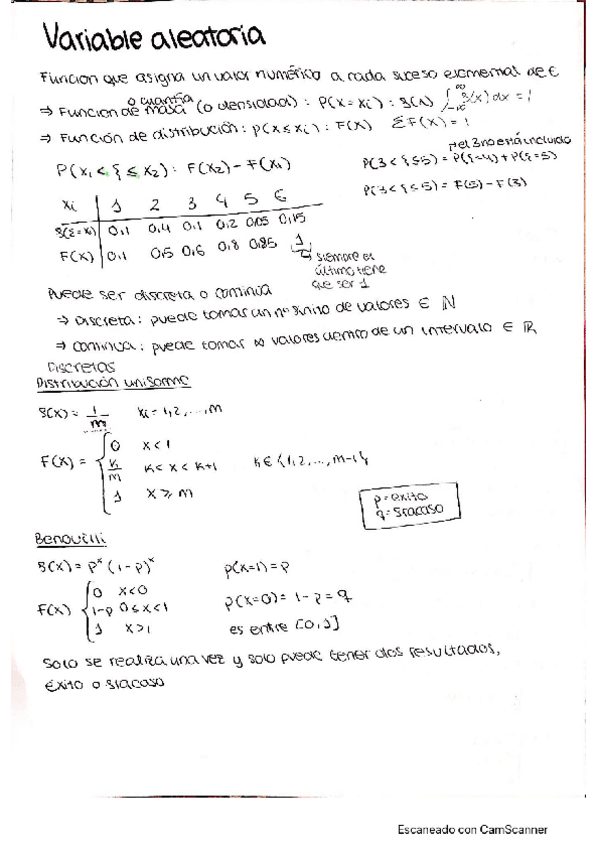 Variable aleatoria
Funcion que asigna un valor numérico a cada suceso elemental de E
o cuantía
⇒ Funcion de masa (o densidad) : P(X = xi) : f(x) ∫_{-∞}^{∞} f(x) dx = 1
⇒ Función de distribución : P(X ≤ xi) : F(x) ΣF(x) = 1
P(x₁ < ξ ≤ x₂) : F(x₂) - F(x₁)
el 3 no está incluido
P(3 < ξ ≤ 5) = P(ξ=4) + P(ξ=5)
P(3 < ξ ≤ 5) = F(5) - F(3)
xi 1 2 3 4 5 6
f(ξ=xi) 0,1 0,4 0,1 0,2 0,05 0,15
F(x) 0,1 0,5 0,6 0,8 0,85 1
siempre el
último tiene
que ser 1
Puede ser discreta o continua
⇒ Discreta : puede tomar un nº finito de valores ∈ ℕ
⇒ Continua : puede tomar ∞ valores dentro de un intervalo ∈ ℝ
Discretas
Distribución uniforme
f(x) = 1/m xi = 1, 2, ..., m
F(x) = { 0 x < 1
k/m k < x < k+1 k ∈ {1, 2, ..., m-1}
1 x ≥ m
p = éxito
q = fracaso
Benouilli
f(x) = pˣ (1-p)ˣ p(x=1) = p
F(x) { 0 x<0
1-p 0 ≤ x < 1 p(x=0) = 1-p = q
1 x>1 es entre [0,1]
Solo se realiza una vez y solo puede tener dos resultados,
éxito o fracaso
Escaneado con CamScanner